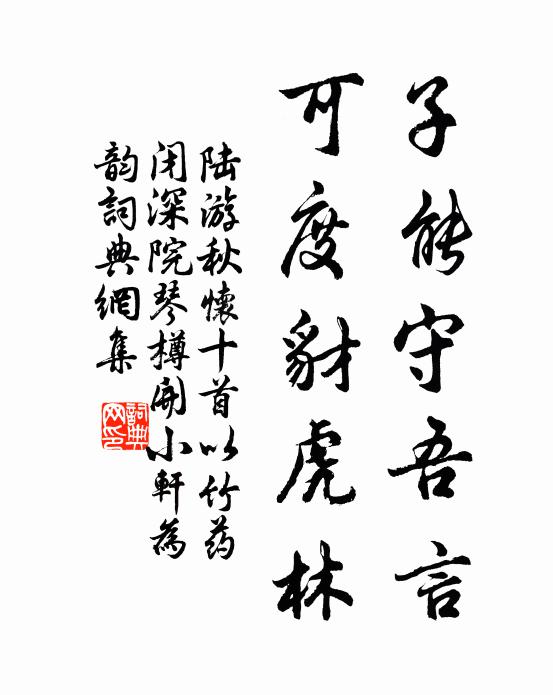 子能守吾言
可度豺虎林
陆游秋懷十首以竹药
闭深院琴樽開小軒為
韵詞典網集
詞典网印